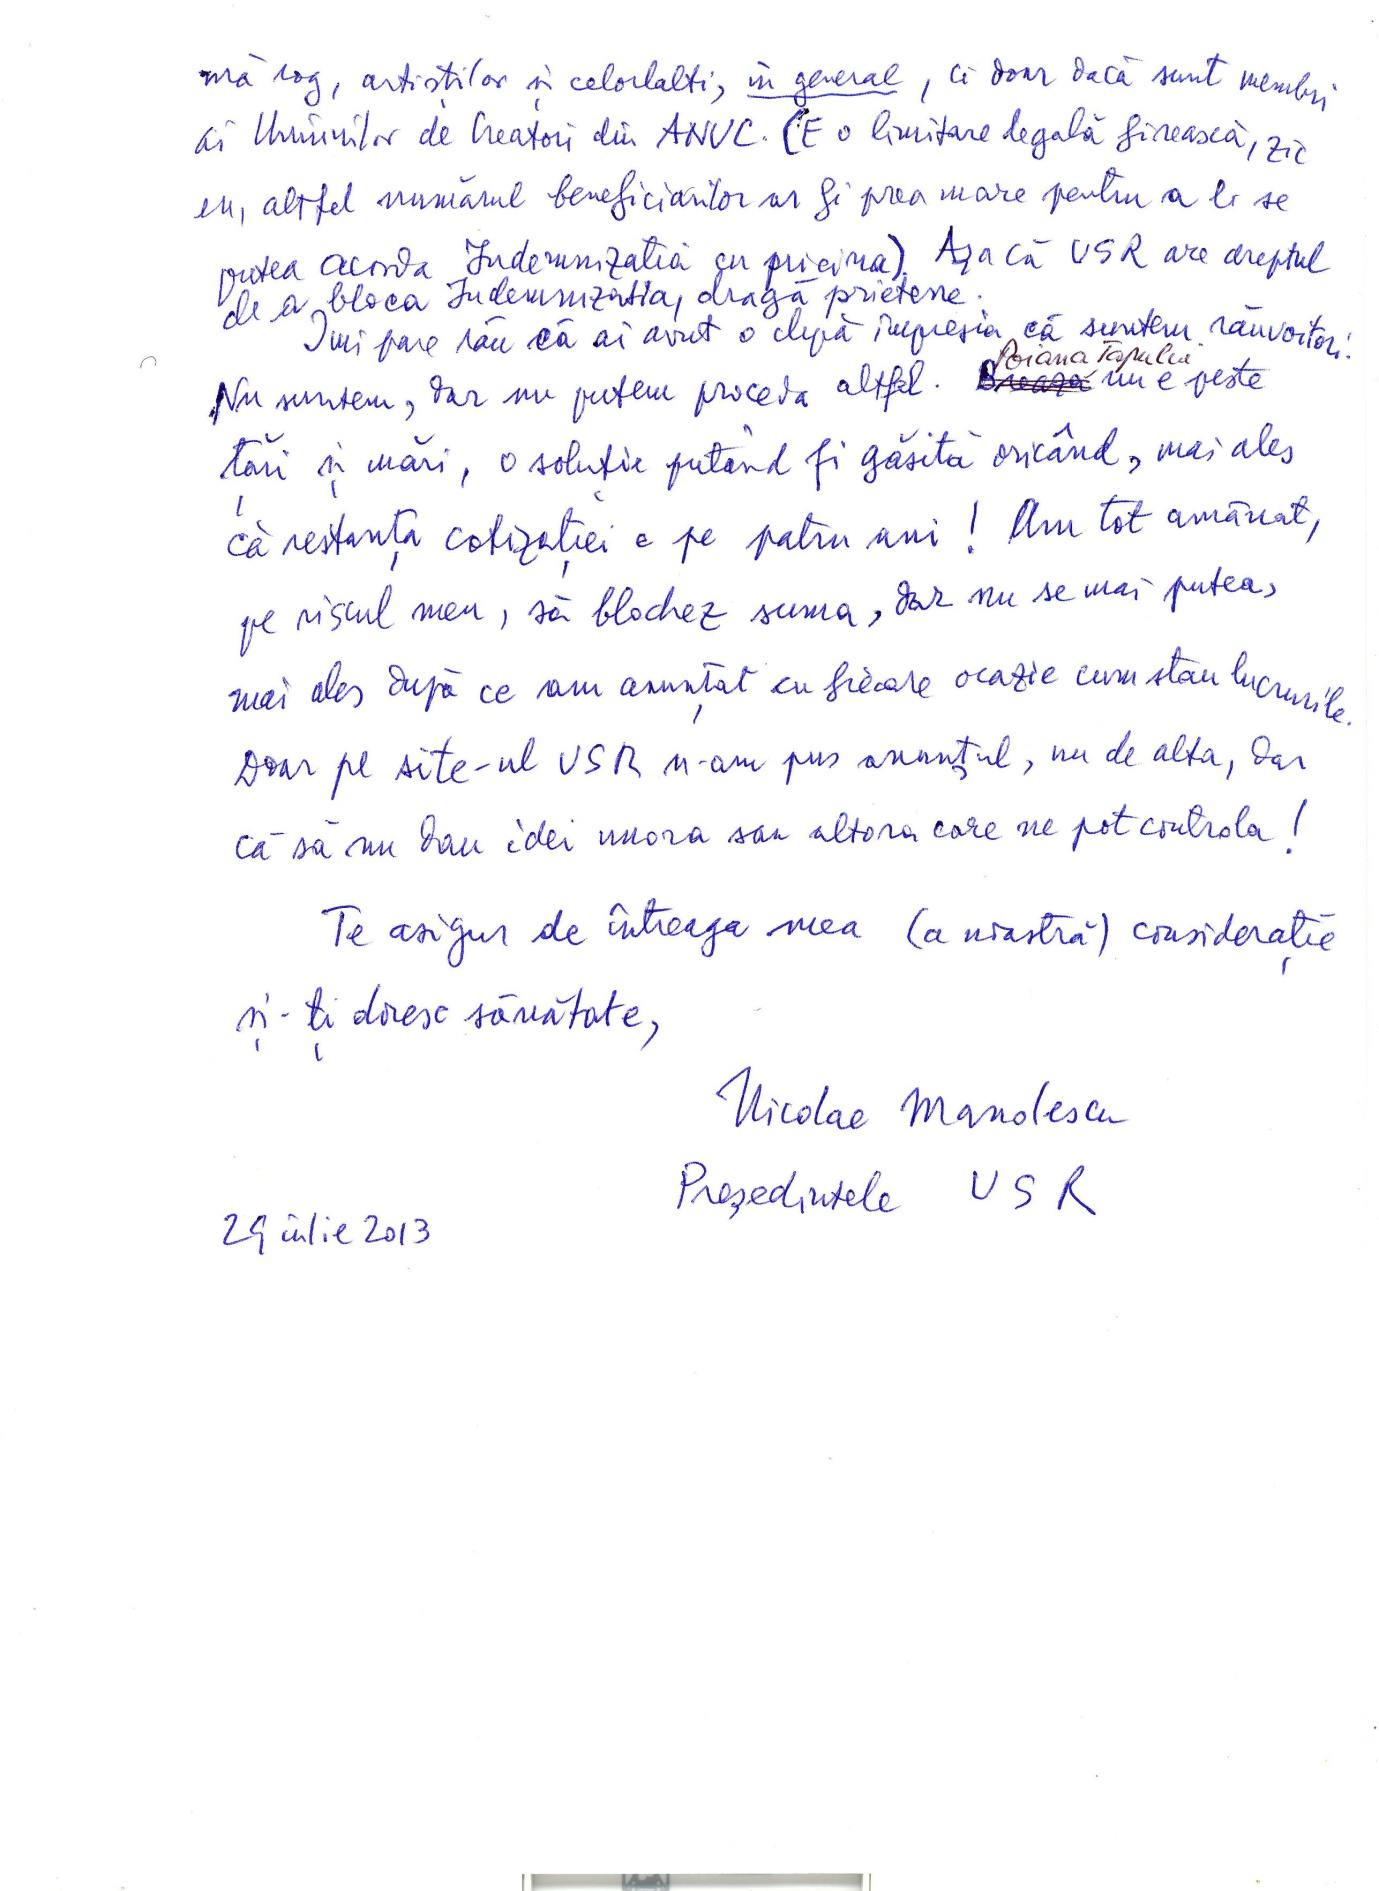 mă rog, artiștilor și celorlalti, în general, ci doar dacă sunt membri
ai Uniunilor de Creatori din ANUC. (E o limitare legală firească, zic
eu, altfel numărul beneficiarilor ar fi prea mare pentru a li se
putea acorda Indemnizatia cu pricina). Așa că USR are dreptul
de a bloca Indemnizatia, dragă prietene.
Imi pare rău că ai avut o clipă impresia că suntem răuvoitori.
Poiana Tapului
Nu suntem, dar nu putem proceda altfel. Breaza nu e peste
țări și mări, o soluție putând fi găsită oricând, mai ales
că restanța cotizației e pe patru ani! Am tot amânat,
pe riscul meu, să blochez suma, dar nu se mai putea,
mai ales după ce am anunțat cu fiecare ocazie cum stau lucrurile.
Doar pe site-ul USR n-am pus anunțul, nu de alta, dar
că să nu dau idei unora sau altora care ne pot controla!
Te asigur de întreaga mea (a noastră) considerație
și-ți doresc sănătate,
Nicolae Manolescu
Președintele USR
29 iulie 2013